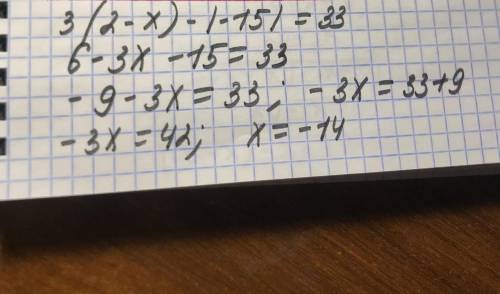 3(2-x)-|-15|=33
6-3x-15=33
-9-3x=33; -3x=33+9
-3x=42; x=-14